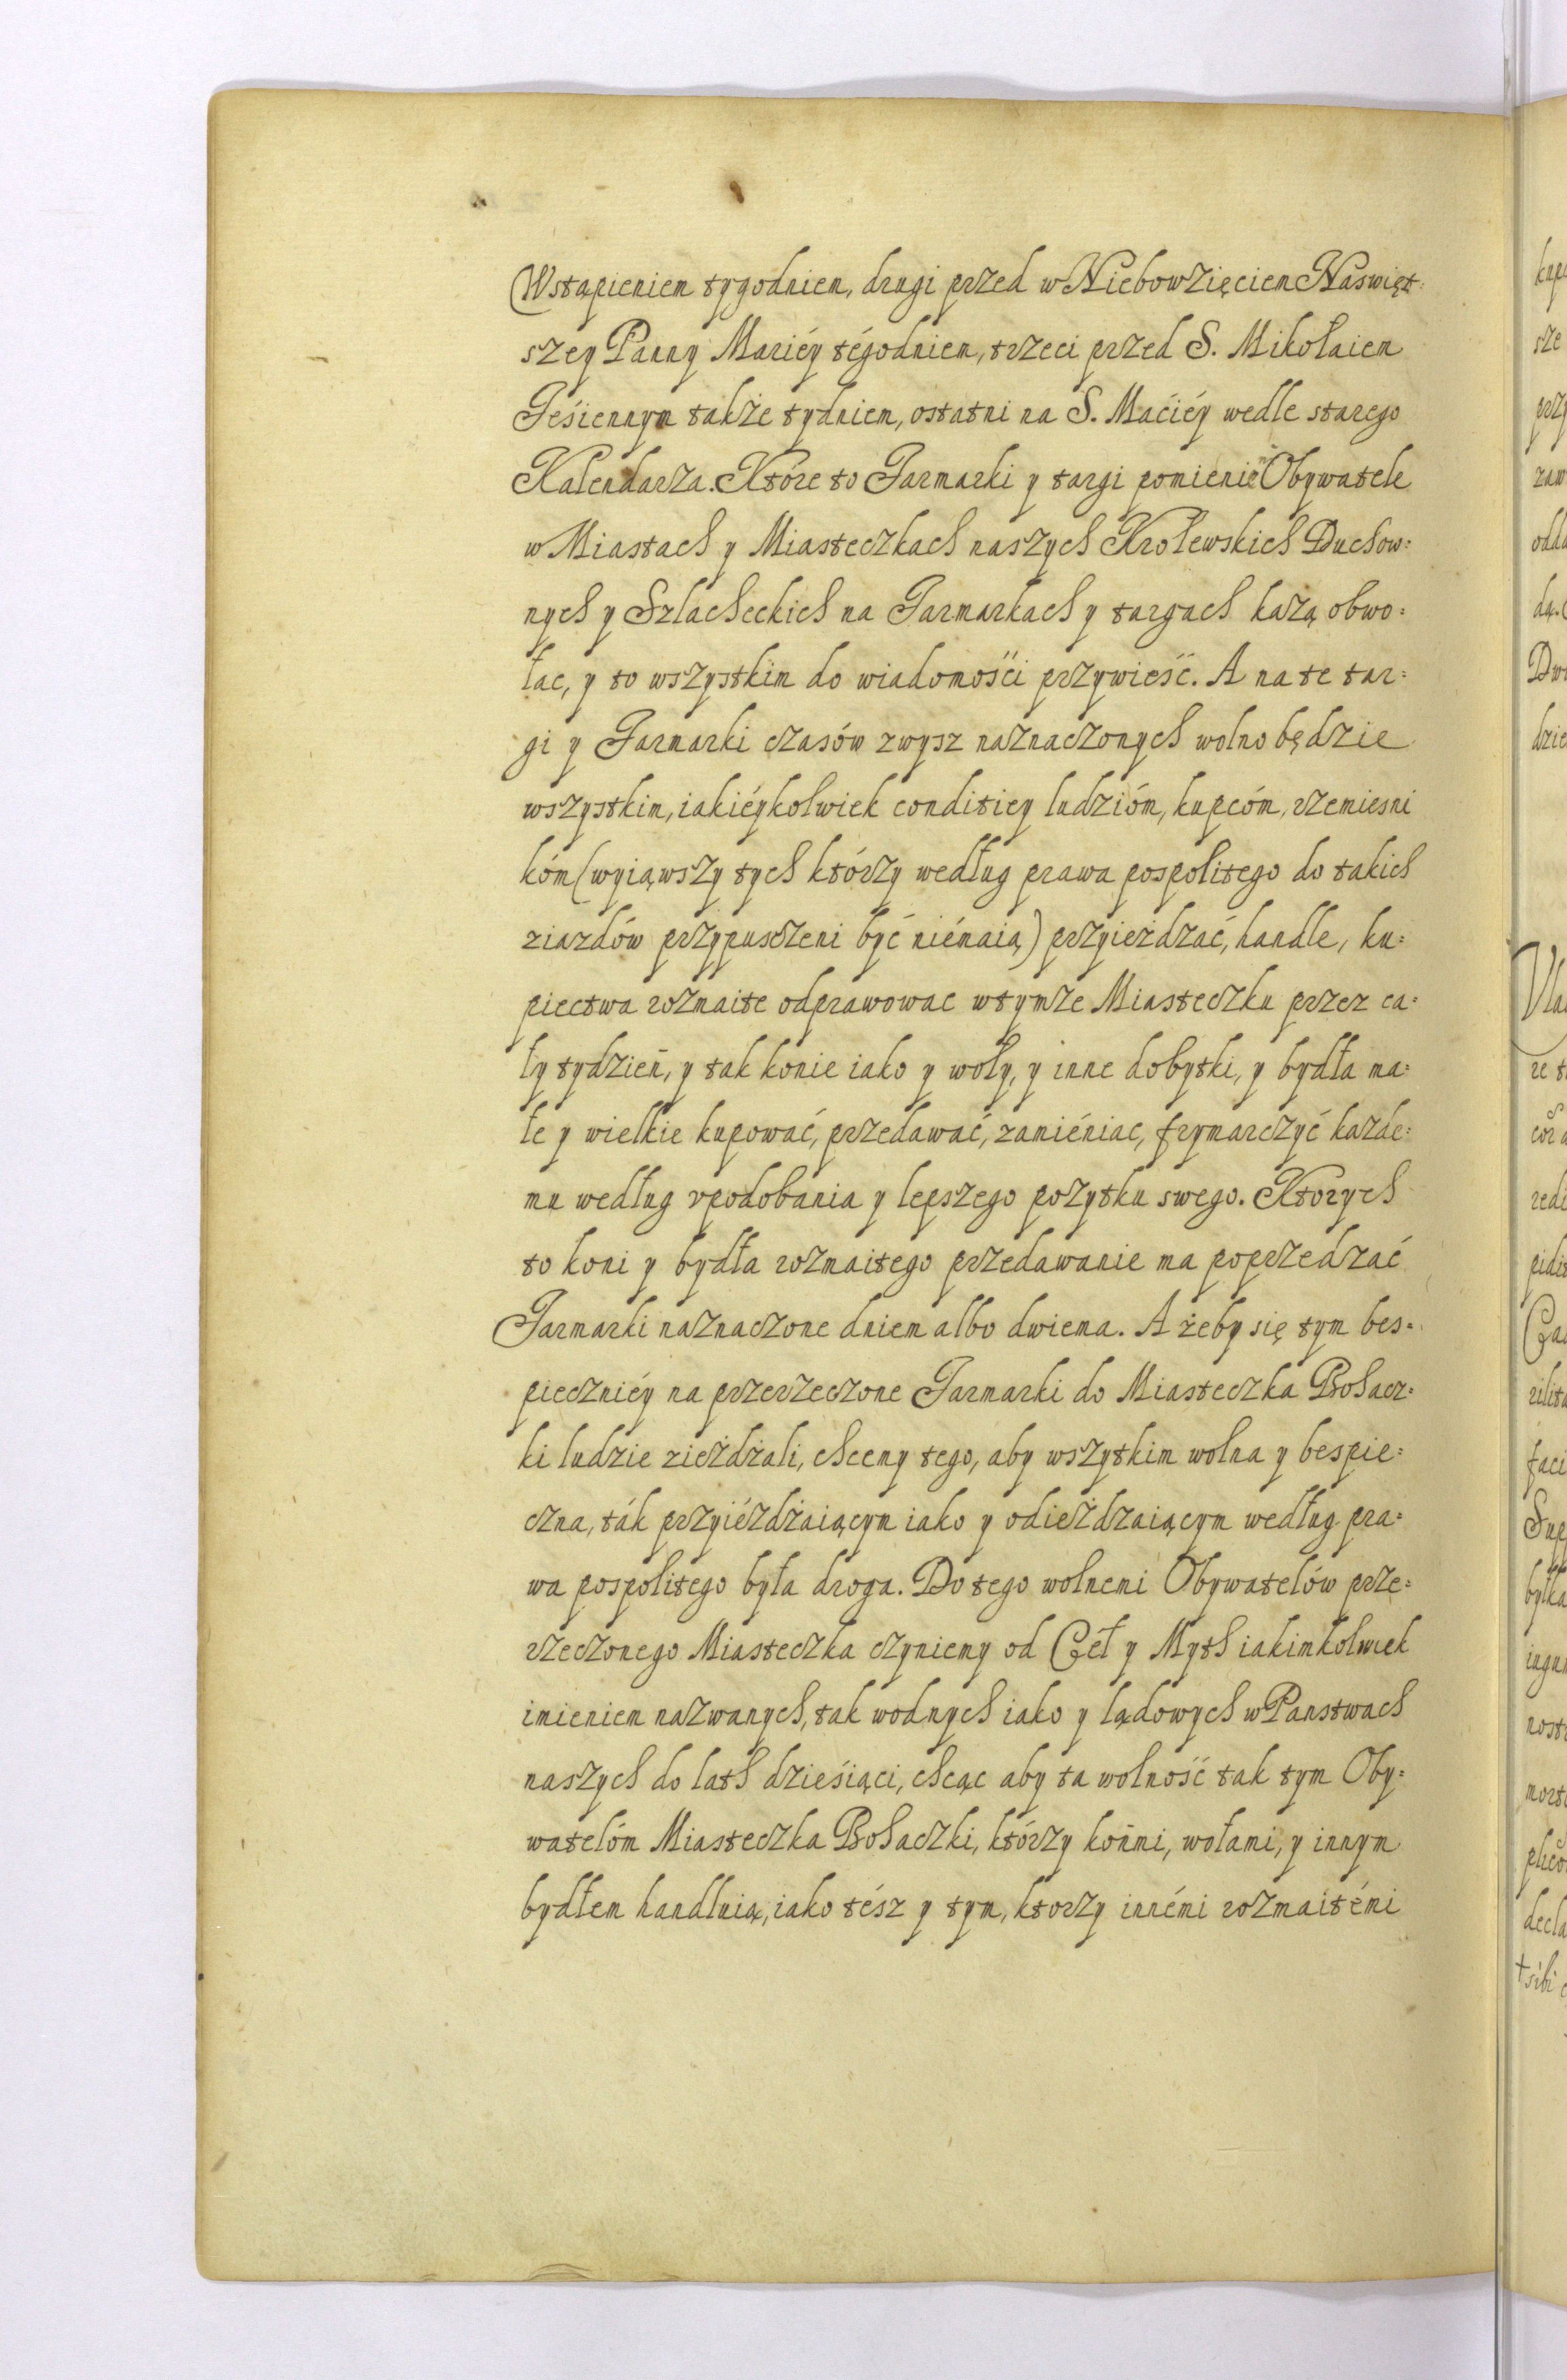 Wstąpieniem tygodniem, drugi przed w Niebowzięciem Naświęt=
szey Panny Mariéy tégodniem, trzeci przed S. Mikołaiem
Jeśiennym także tydniem, ostatni na S. Maćiéy wedle starego
Kalendarza. Które to Jarmarki y targi pomienie̅ Obywatele
w Miastach y Miasteczkach naszych Krolewskich Duchow=
nych y Szlacheckich na Jarmarkach y targach każą obwo=
łac, y to wszystkim do wiadomośći przywieść. A na te tar=
gi y Jarmarki czasów zwysz naznaczonych wolno będzie
wszystkim, iakiéykolwiek conditiey ludzióm, kupcóm, rzemiesni
kóm (wyiąwszy tych którzy według prawa pospolitego do takich
ziazdów przypuszczeni być niémaią) przyieżdzać, handle, ku=
piectwa rozmaite odprawowac w tymże Miasteczku przez ca=
ły tydzień, y tak konie iako y woły, y inne dobytki, y bydła ma=
łe y wielkie kupować, przedawać, zamiéniac, frymarczyć każde=
mu według vpodobania y lepszego pożytku swego. Ktorych
to koni y bydła rozmaitego przedawanie ma poprzedzać
Jarmarki naznaczone dniem albo dwiema. A żeby się tym bes=
pieczniéy na przerzeczone Jarmarki do Miasteczka Bohacz=
ki ludzie zieżdżali, chcemy tego, aby wszytkim wolna y bespie=
czna, ták przyiéżdżaiącym iako y odieżdzaiącym według pra=
wa pospolitego była droga. Do tego wolnemi Obywatelów prze=
rzeczonego Miasteczka czyniemy od Ceł y Myth iakimkolwiek
imieniem nazwanych, tak wodnych iako y lądowych w Panstwach
naszych do lath dzieśiąci, chcąc aby ta wolność tak tym Oby=
watelóm Miasteczka Bohaczki, którzy końmi, wołami, y innym
bydłem handluią, iako tész y tym, ktorzy innémi rozmaitémi